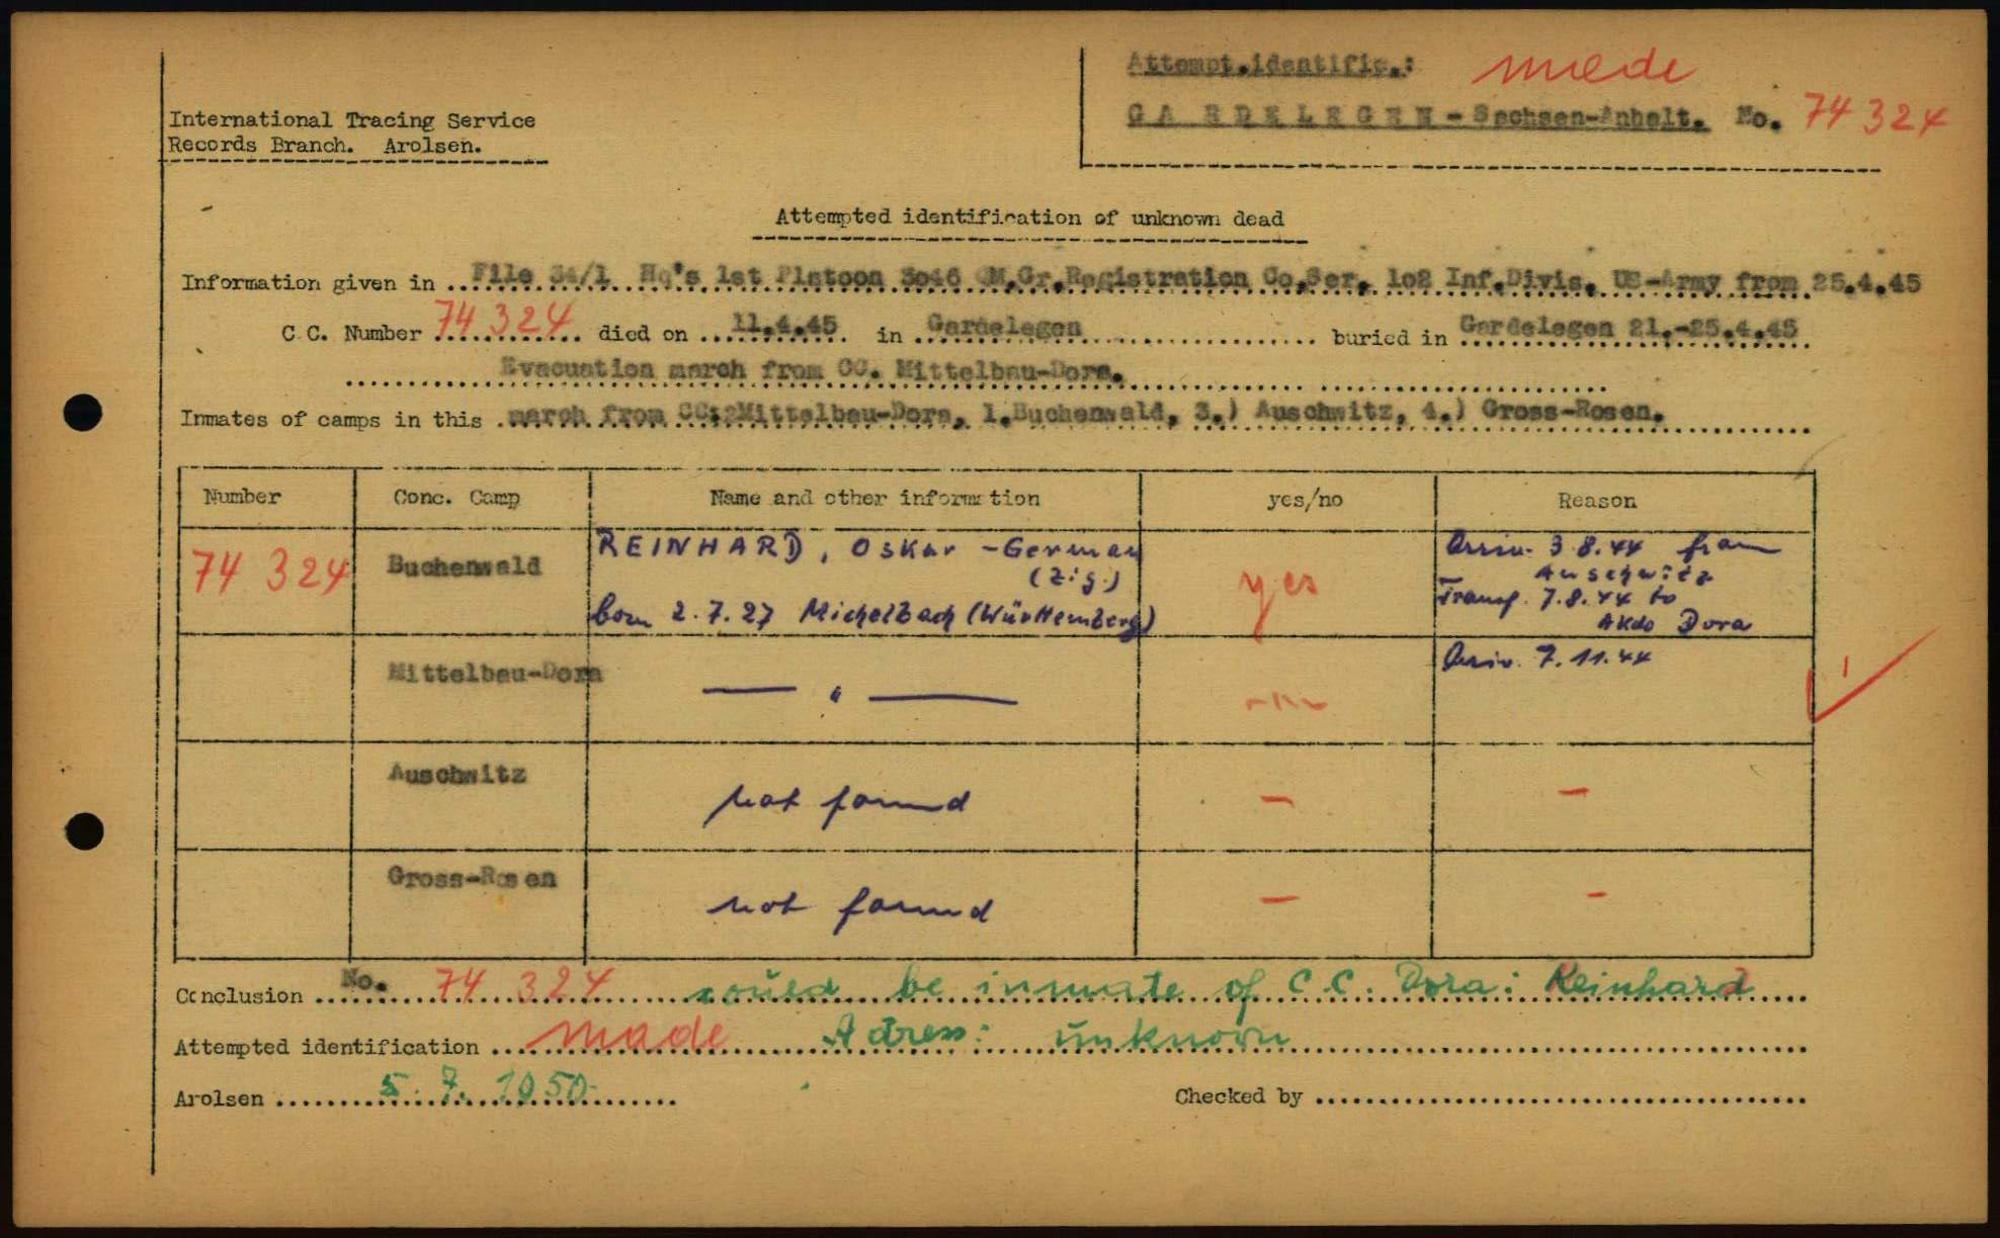 Attempt.identific.: made
GARDELEGEN - Sachsen-Anhalt. No. 74 324
International Tracing Service
Records Branch. Arolsen.
Attempted identification of unknown dead
Information given in File 34/1 Hq's 1st Platoon 3o46 QM.Gr.Registration Co.Ser. 1o2 Inf.Divis. US-Army from 25.4.45
C.C. Number 74 324 died on 11.4.45 in Gardelegen buried in Gardelegen 21.-25.4.45
Evacuation march from CC. Mittelbau-Dora.
Inmates of camps in this march from CC:2Mittelbau-Dora, 1.Buchenwald, 3.) Auschwitz, 4.) Gross-Rosen.
Number Conc. Camp Name and other information yes/no Reason
74 324 Buchenwald REINHARD, Oskar - German (Zig.) born 2.7.27 Michelbach (Württemberg) yes Arriv. 3.8.44 from Auschwitz
Transf. 7.8.44 to
AKdo Dora
Mittelbau-Dora — " — -"- Arriv. 7.11.44
Auschwitz not found — —
Gross-Rosen not found — -
Conclusion No. 74 324 could be inmate of C.C. Dora: Reinhard
Attempted identification made Adress: unknown
Arolsen 5.7.1950 Checked by